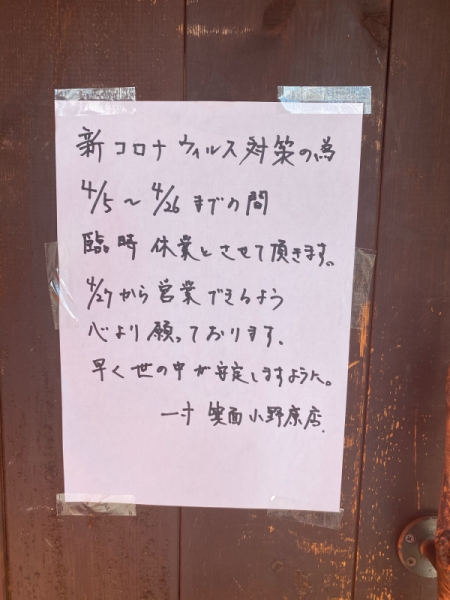 新コロナウィルス対策の為
4/5〜4/26までの間
臨時休業とさせて頂きます。
4/27から営業できるよう
心より願っております。
早く世の中が安定しますように。
一寸 箕面小野原店.